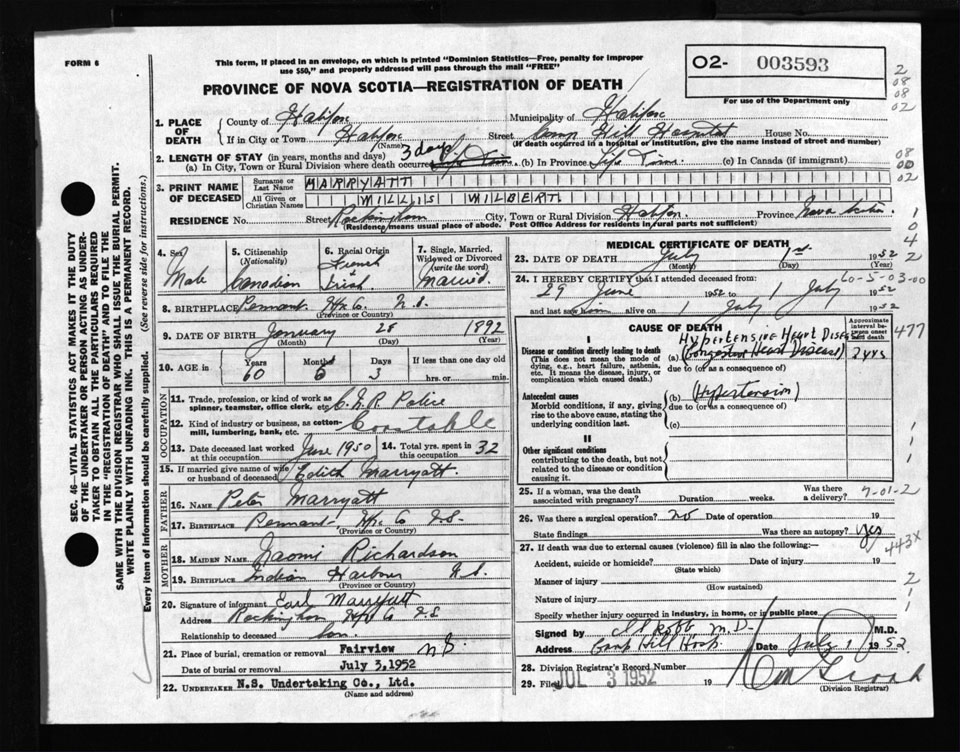 FORM 6
This form, if placed in an envelope, on which is printed "Dominion Statistics—Free, penalty for improper
use $50," and properly addressed will pass through the mail "FREE"
O2- 003593
For use of the Department only
PROVINCE OF NOVA SCOTIA—REGISTRATION OF DEATH
1. PLACE OF DEATH
County of Halifax Municipality of Halifax
If in City or Town Halifax Street Camp Hill Hospital House No.
(Name) (If death occurred in a hospital or institution, give the name instead of street and number)
2. LENGTH OF STAY (in years, months and days) 3 days
(a) In City, Town or Rural Division where death occurred Life Time (b) In Province Life Time (c) In Canada (if immigrant)
3. PRINT NAME OF DECEASED
Surname or Last Name MARRYATT
All Given or Christian Names WILLIS WILBERT
RESIDENCE No. Street Rockingham City, Town or Rural Division Halifax Province Nova Scotia
(Residence means usual place of abode. Post Office Address for residents in rural parts not sufficient)
4. Sex Male
5. Citizenship (Nationality) Canadian
6. Racial Origin French & Irish
7. Single, Married, Widowed or Divorced (write the word) Married
8. BIRTHPLACE Pennant Hfx Co. N.S.
(Province or Country)
9. DATE OF BIRTH January 28 1892
(Month) (Day) (Year)
10. AGE in Years 60 Months 5 Days 3 If less than one day old hrs. or min.
OCCUPATION
11. Trade, profession, or kind of work as spinner, teamster, office clerk, etc. C.N.R. Police
12. Kind of industry or business, as cotton-mill, lumbering, bank, etc. Constable
13. Date deceased last worked at this occupation June 1950 14. Total yrs. spent in this occupation 32
15. If married give name of wife or husband of deceased Edith Marryatt
FATHER
16. NAME Peter Marryatt
17. BIRTHPLACE Pennant Hfx Co N.S.
(Province or Country)
MOTHER
18. MAIDEN NAME Naomi Richardson
19. BIRTHPLACE Indian Harbour N.S.
(Province or Country)
20. Signature of informant Earl Marryatt
Address Rockingham Hfx Co NS
Relationship to deceased Son.
21. Place of burial, cremation or removal Fairview N.S.
Date of burial or removal July 3, 1952
22. UNDERTAKER N.S. Undertaking Co., Ltd.
(Name and address)
MEDICAL CERTIFICATE OF DEATH
23. DATE OF DEATH July 1st 1952
(Month) (Day)
24. I HEREBY CERTIFY that I attended deceased from:
29 June 1952 to 1 July 1952
and last saw him alive on 1 July 1952
CAUSE OF DEATH
Approximate interval between onset and death
I
Disease or condition directly leading to death
(This does not mean the mode of dying, e.g., heart failure, asthenia, etc. It means the disease, injury, or complication which caused death.)
Hypertensive Heart Disease
(a) (Congestive Heart Disease) 2 yrs
due to (or as a consequence of)
Antecedent causes
Morbid conditions, if any, giving rise to the above cause, stating the underlying condition last.
(b) (Hypertension)
due to (or as a consequence of)
(c)
II
Other significant conditions
contributing to the death, but not related to the disease or condition causing it.
25. If a woman, was the death associated with pregnancy? Duration weeks. Was there a delivery?
26. Was there a surgical operation? no Date of operation 19
State findings Was there an autopsy? yes
27. If death was due to external causes (violence) fill in also the following:—
Accident, suicide or homicide? Date of injury 19
(State which)
Manner of injury
(How sustained)
Nature of injury
Specify whether injury occurred in industry, in home, or in public place
Signed by M.D. M.D.
Address Camp Hill Hosp. Date July 1 1952
28. Division Registrar's Record Number
29. Filed JUL 3 1952 19
(Division Registrar)
SEC. 46—VITAL STATISTICS ACT MAKES IT THE DUTY
OF THE UNDERTAKER OR PERSON ACTING AS UNDER-
TAKER TO OBTAIN ALL THE PARTICULARS REQUIRED
IN THE "REGISTRATION OF DEATH" AND TO FILE THE
SAME WITH THE DIVISION REGISTRAR WHO SHALL ISSUE THE BURIAL PERMIT.
WRITE PLAINLY WITH UNFADING INK. THIS IS A PERMANENT RECORD.
Every item of information should be carefully supplied. (See reverse side for instructions.)
2
08
08
02
08
00
02
1
0
4
2
60-5-03-00
477
7-01-2
443X
2
1
1